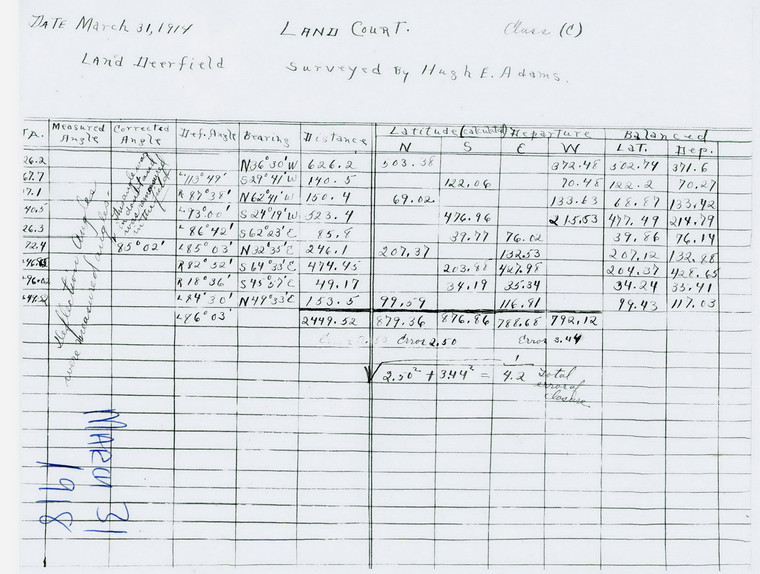 DATE March 31, 1914 LAND COURT. Class (C)
Land Deerfield Surveyed By Hugh E. Adams.
TA. Measured Angle Corrected Angle Def. Angle Bearing Distance Latitude (calculated) Departure Balanced
N S E W LAT. Dep.
26.2 N36°30'W 626.2 503.38 372.48 502.74 371.6
67.7 L 113°49' S29°41'W 140.5 122.06 70.48 122.2 70.27
R 87°38' N62°41'W 150.4 69.02 133.63 68.87 133.42
40.5 L 93°00' S24°19'W 523.4 476.96 215.53 477.49 214.79
26.3 L 86°42' S62°23'E 85.8 39.77 76.02 39.86 76.14
72.4 85°02' L 85°03' N32°35'E 246.1 207.37 132.53 207.12 132.88
R 82°32' S64°33'E 474.45 203.88 427.98 204.37 428.65
R 18°36' S45°57'E 49.17 34.19 35.34 34.24 35.41
L 84°30' N49°33'E 153.5 99.59 116.81 99.43 117.03
L 86°03' 2449.52 879.36 876.86 788.68 792.12
Error 2.50 Error 3.44
√2.50² + 3.44² = 4.2 Total error of closure
Deflection Angles were measured angles
MARCH 31
1918